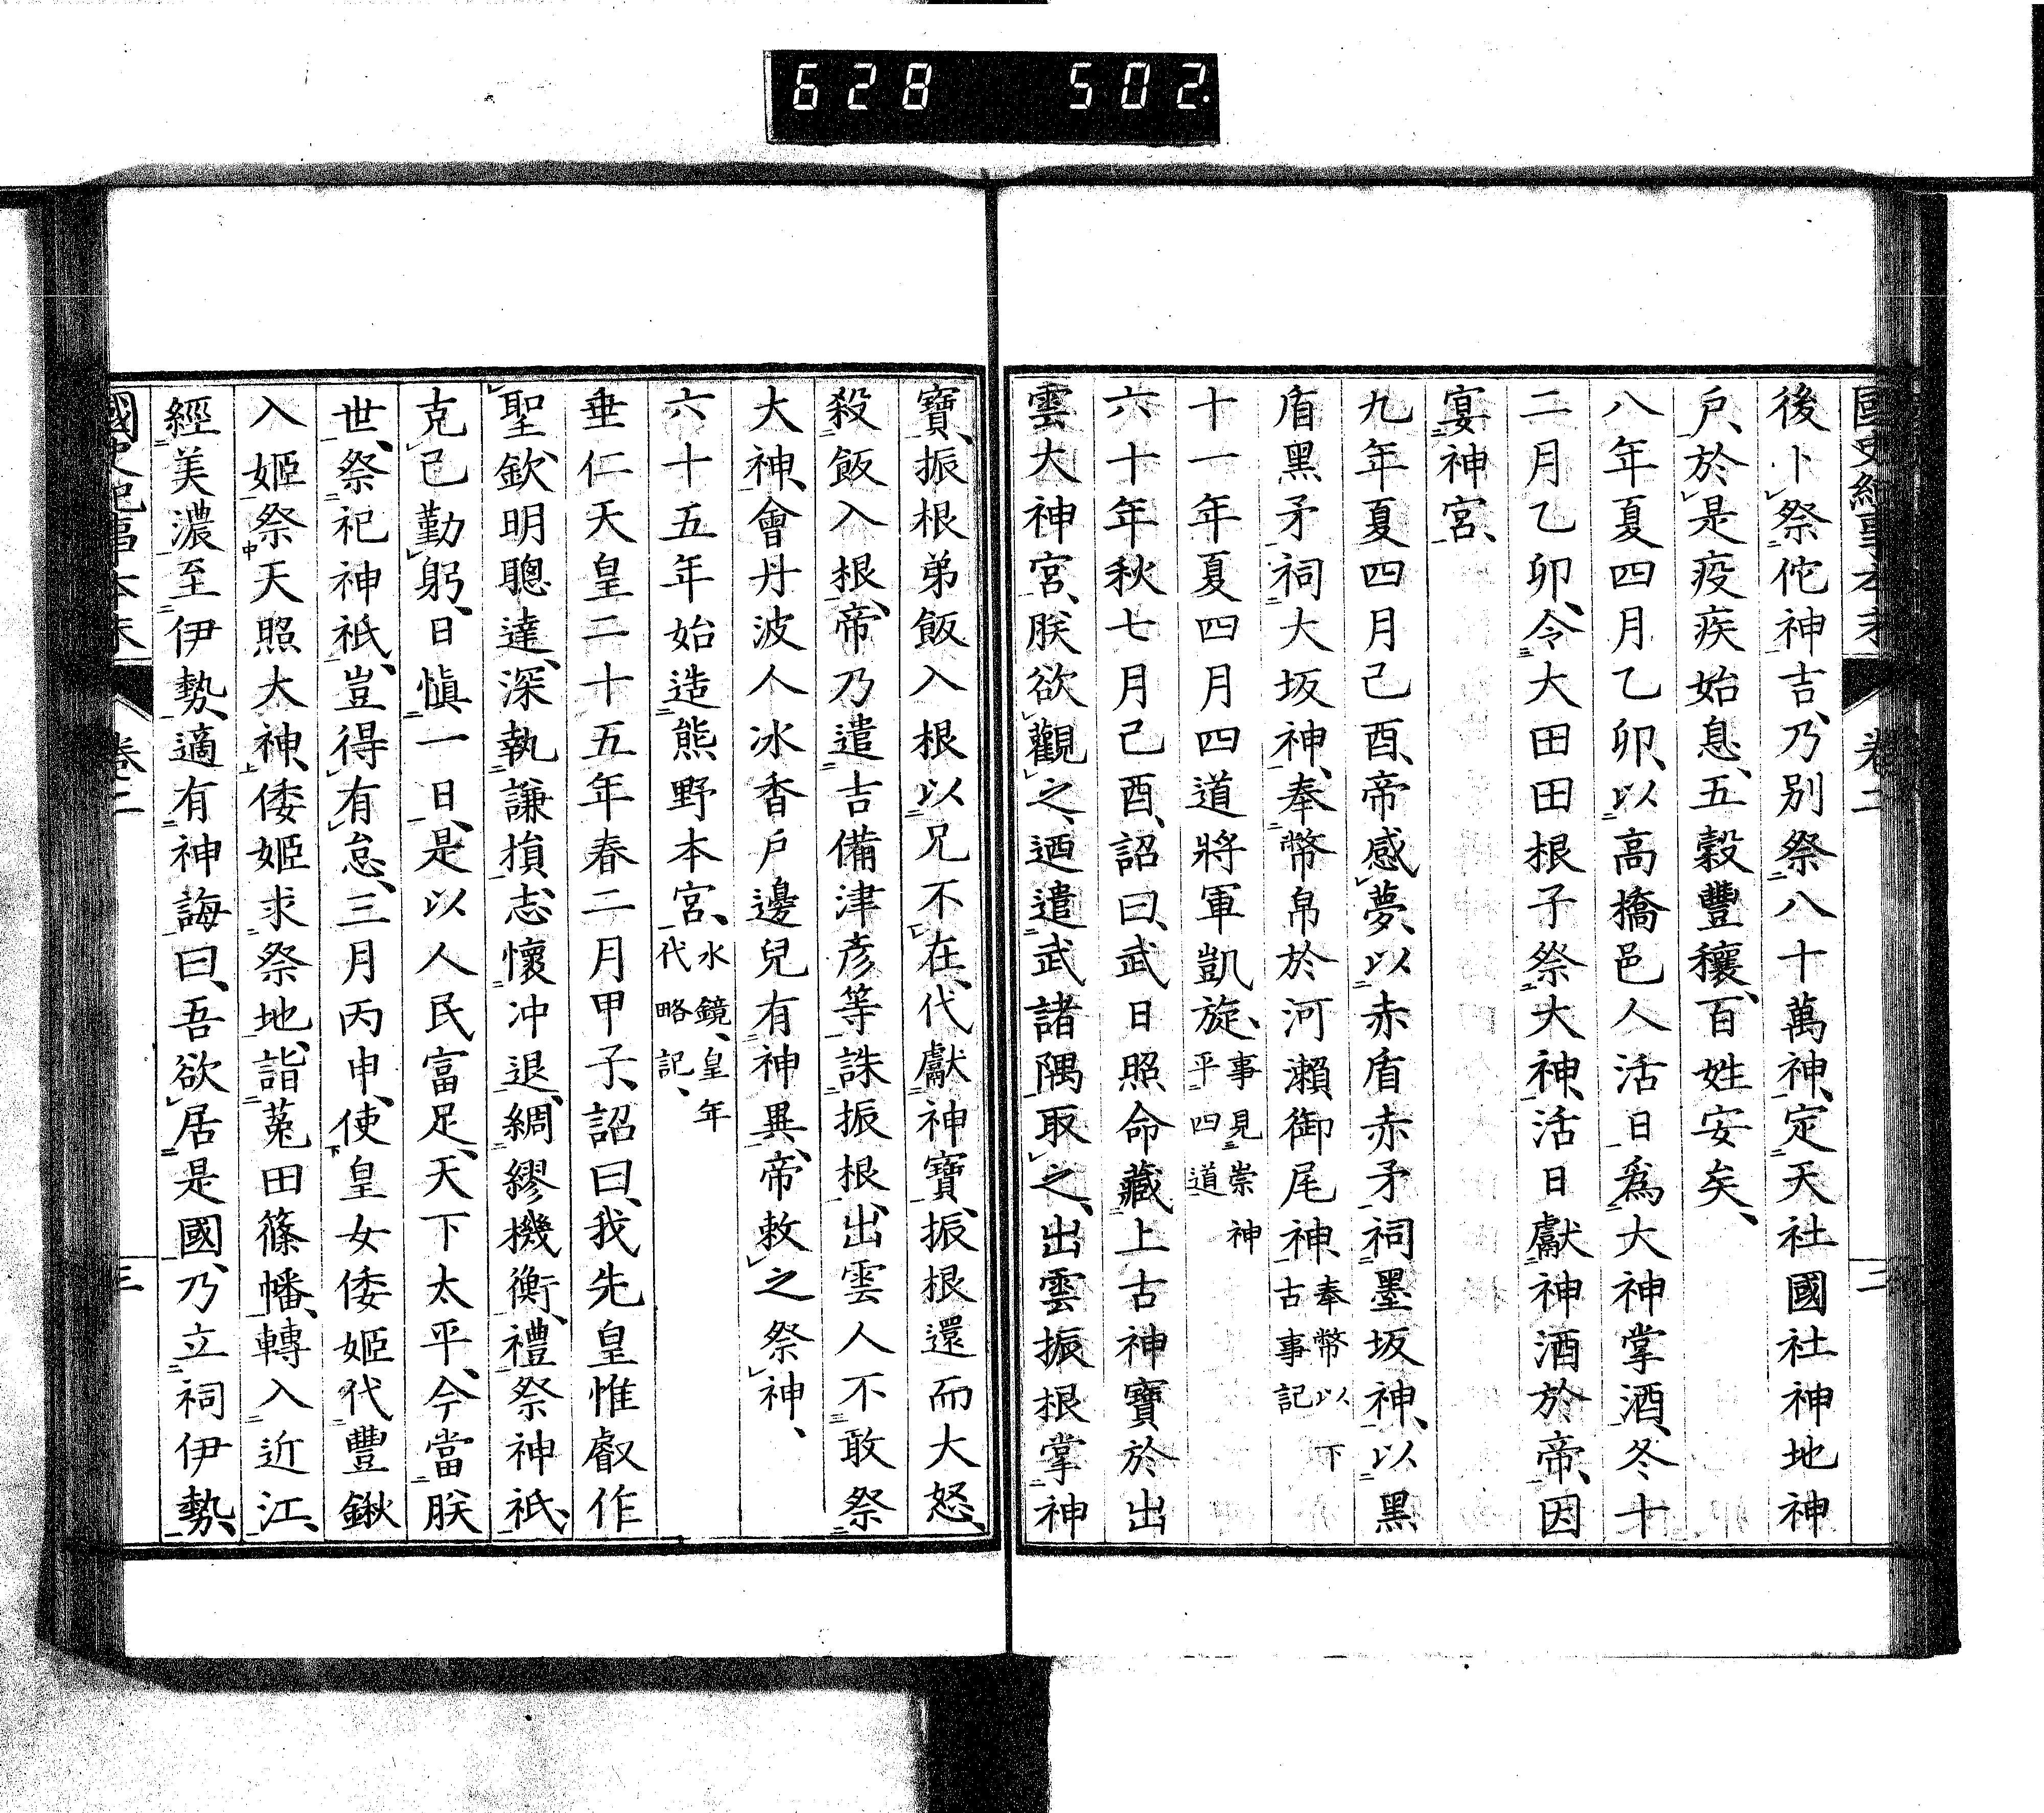 628 502.
國史紀事本末 卷二 二
後卜祭佗神吉、乃別祭八十萬神、定天社國社神地神
戶、於是疫疾始息、五穀豐穰、百姓安矣、
八年夏四月乙卯、以高橋邑人活日爲大神掌酒、冬十
二月乙卯、令大田田根子祭大神、活日獻神酒於帝、因
宴神宮、
九年夏四月己酉、帝感夢、以赤盾赤矛祠墨坂神、以黑
盾黑矛祠大坂神、奉幣帛於河瀨御尾神、奉幣以下古事記
十一年夏四月四道將軍凱旋、事見崇神平四道
六十年秋七月己酉、詔曰、武日照命藏上古神寶、於出
雲大神宮、朕欲觀之、迺遣武諸隅取之、出雲振根掌神
寶、振根弟飯入根以兄不在、代獻神寶、振根還而大怒、
殺飯入根、帝乃遣吉備津彦等誅振根、出雲人不敢祭
大神、會丹波人冰香戶邊兒有神異、帝敕之祭神、
六十五年始造熊野本宮、水鏡、皇年代略記、
垂仁天皇二十五年春二月甲子、詔曰、我先皇惟叡作
聖、欽明聰達、深執謙損、志懷冲退、綢繆機衡、禮祭神祇、
克己勤躬、日愼一日、是以人民富足、天下太平、今當朕
世、祭祀神祇、豈得有怠、三月丙申、使皇女倭姬代豐鍬
入姬祭天照大神、倭姬求祭地、詣菟田篠幡、轉入近江、
經美濃至伊勢、適有神誨曰、吾欲居是國、乃立祠伊勢、
國史紀事本末 卷二 三